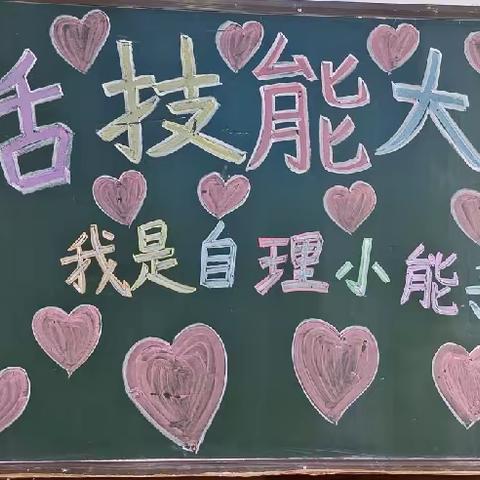 活技能大
我是自理小能